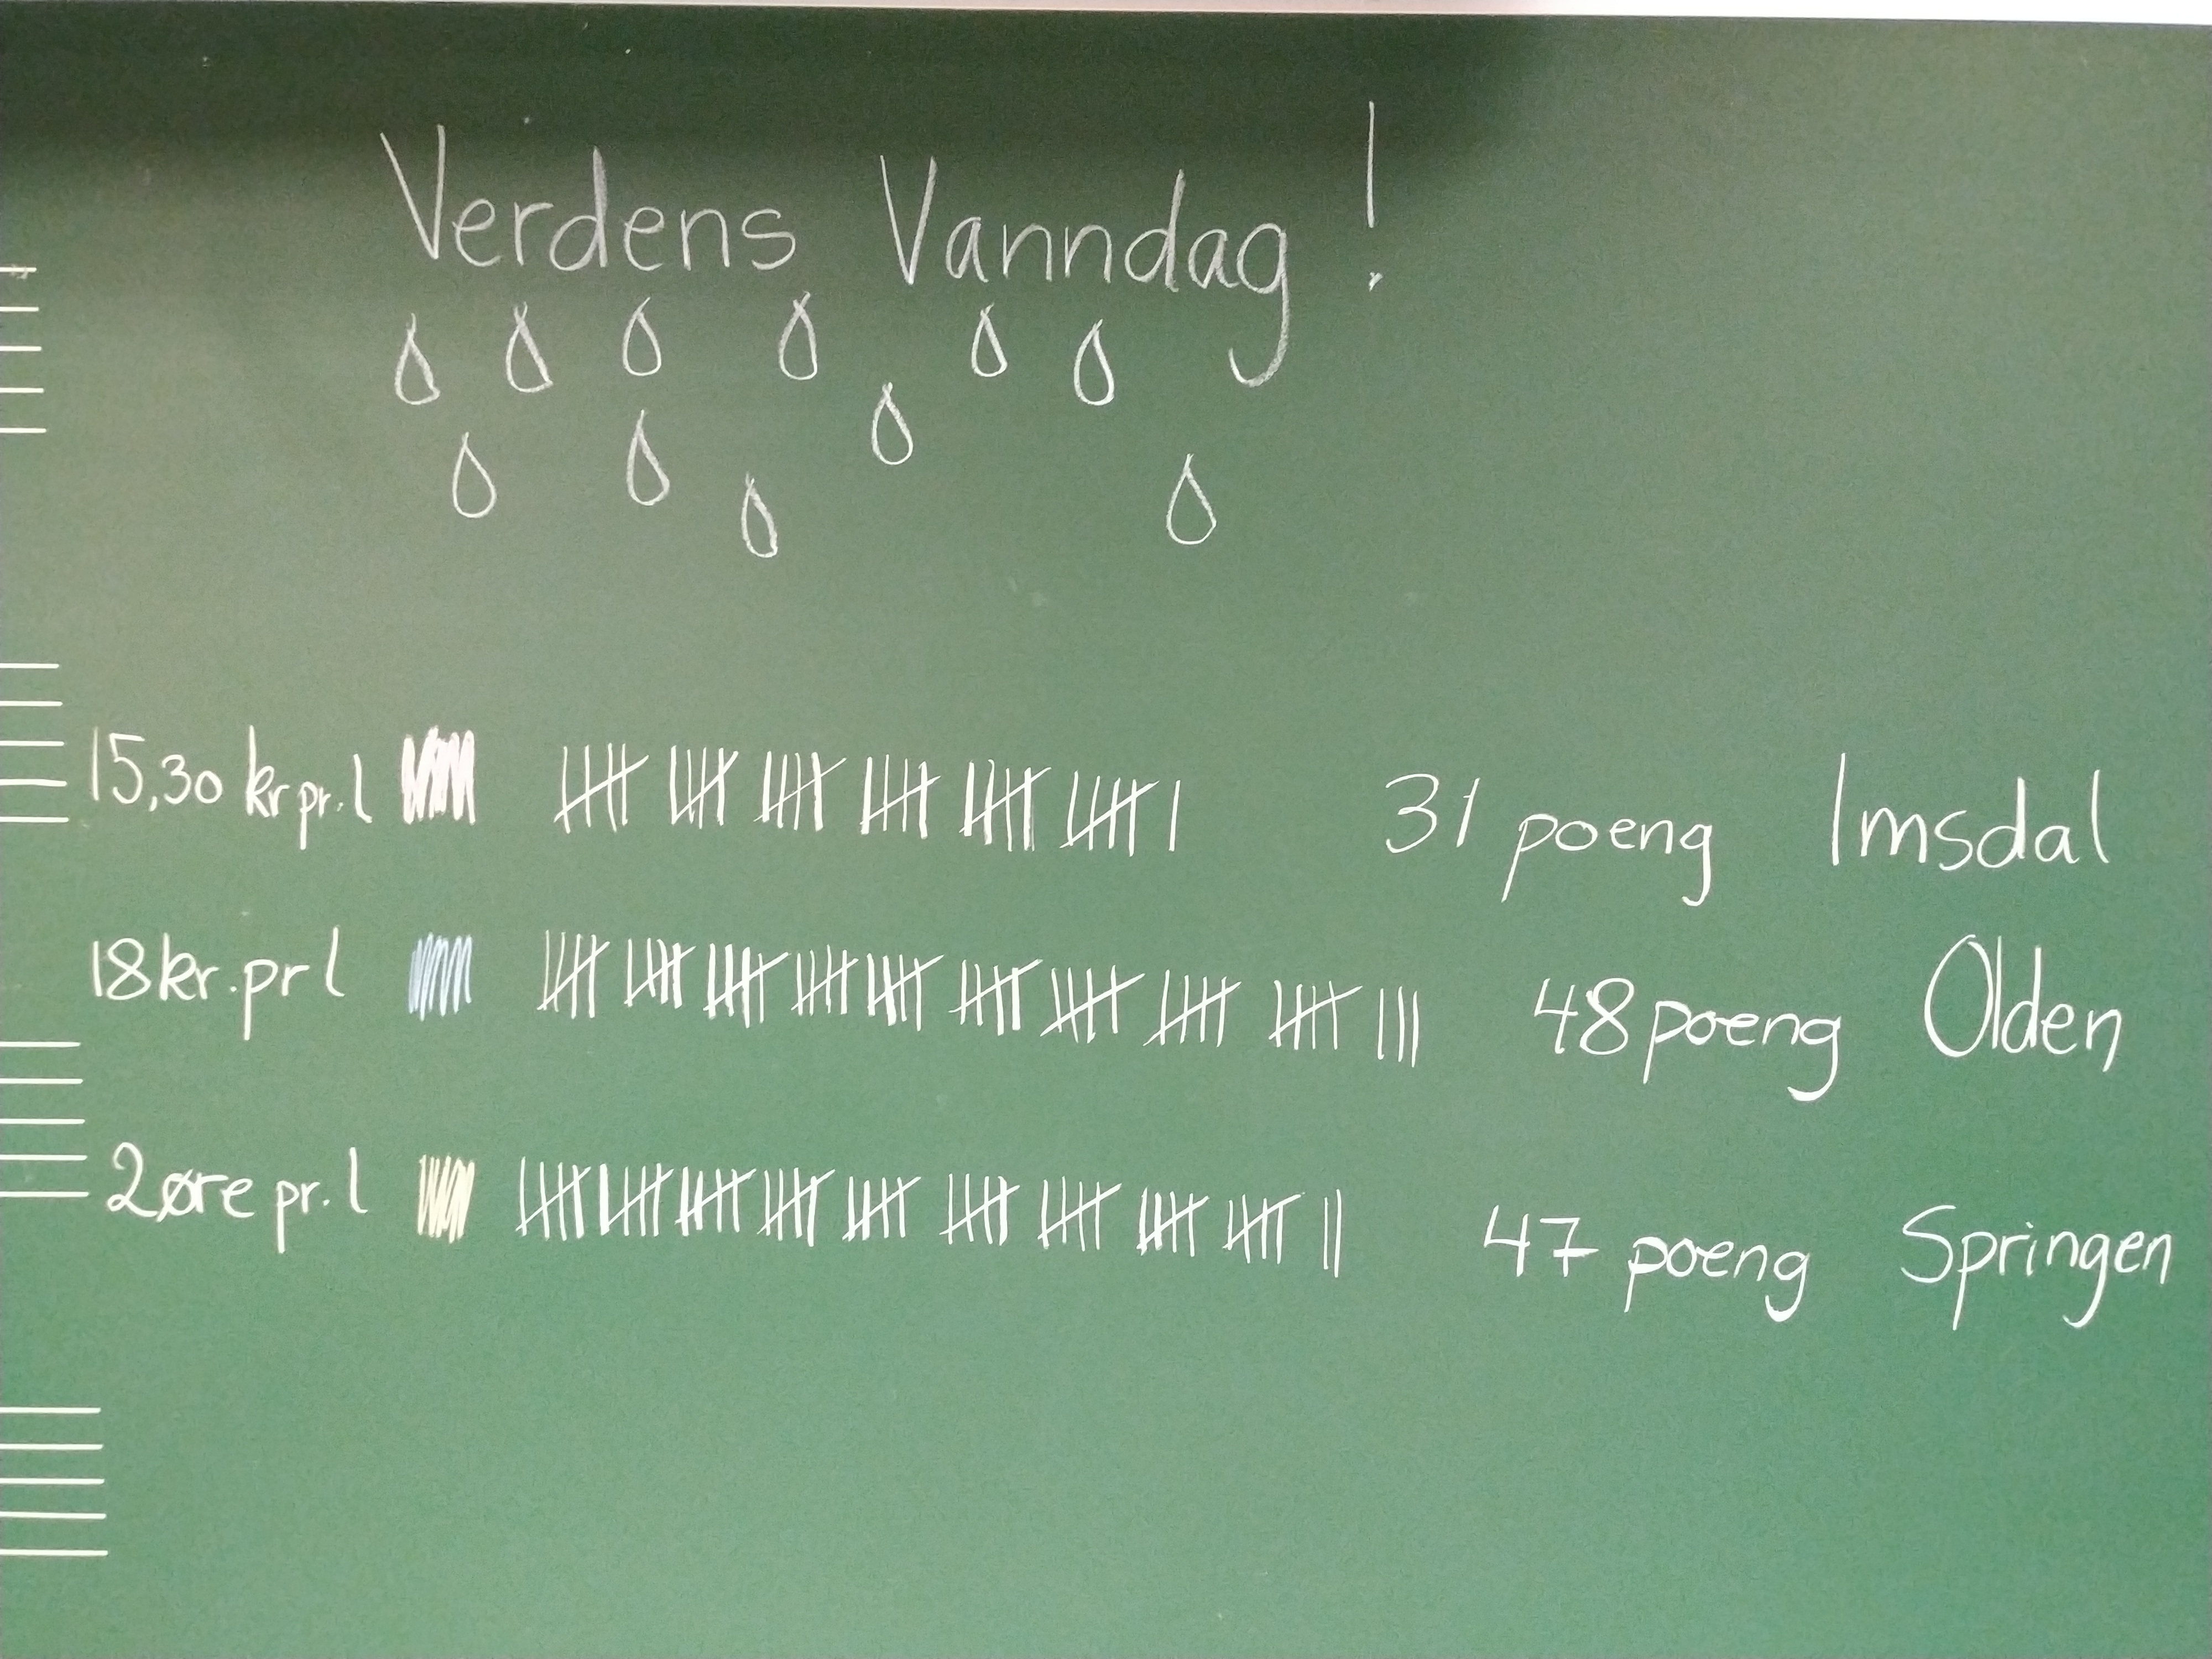 Verdens Vanndag!
15,30 kr pr. l 31 poeng Imsdal
18 kr. pr l 48 poeng Olden
2 øre pr. l 47 poeng Springen